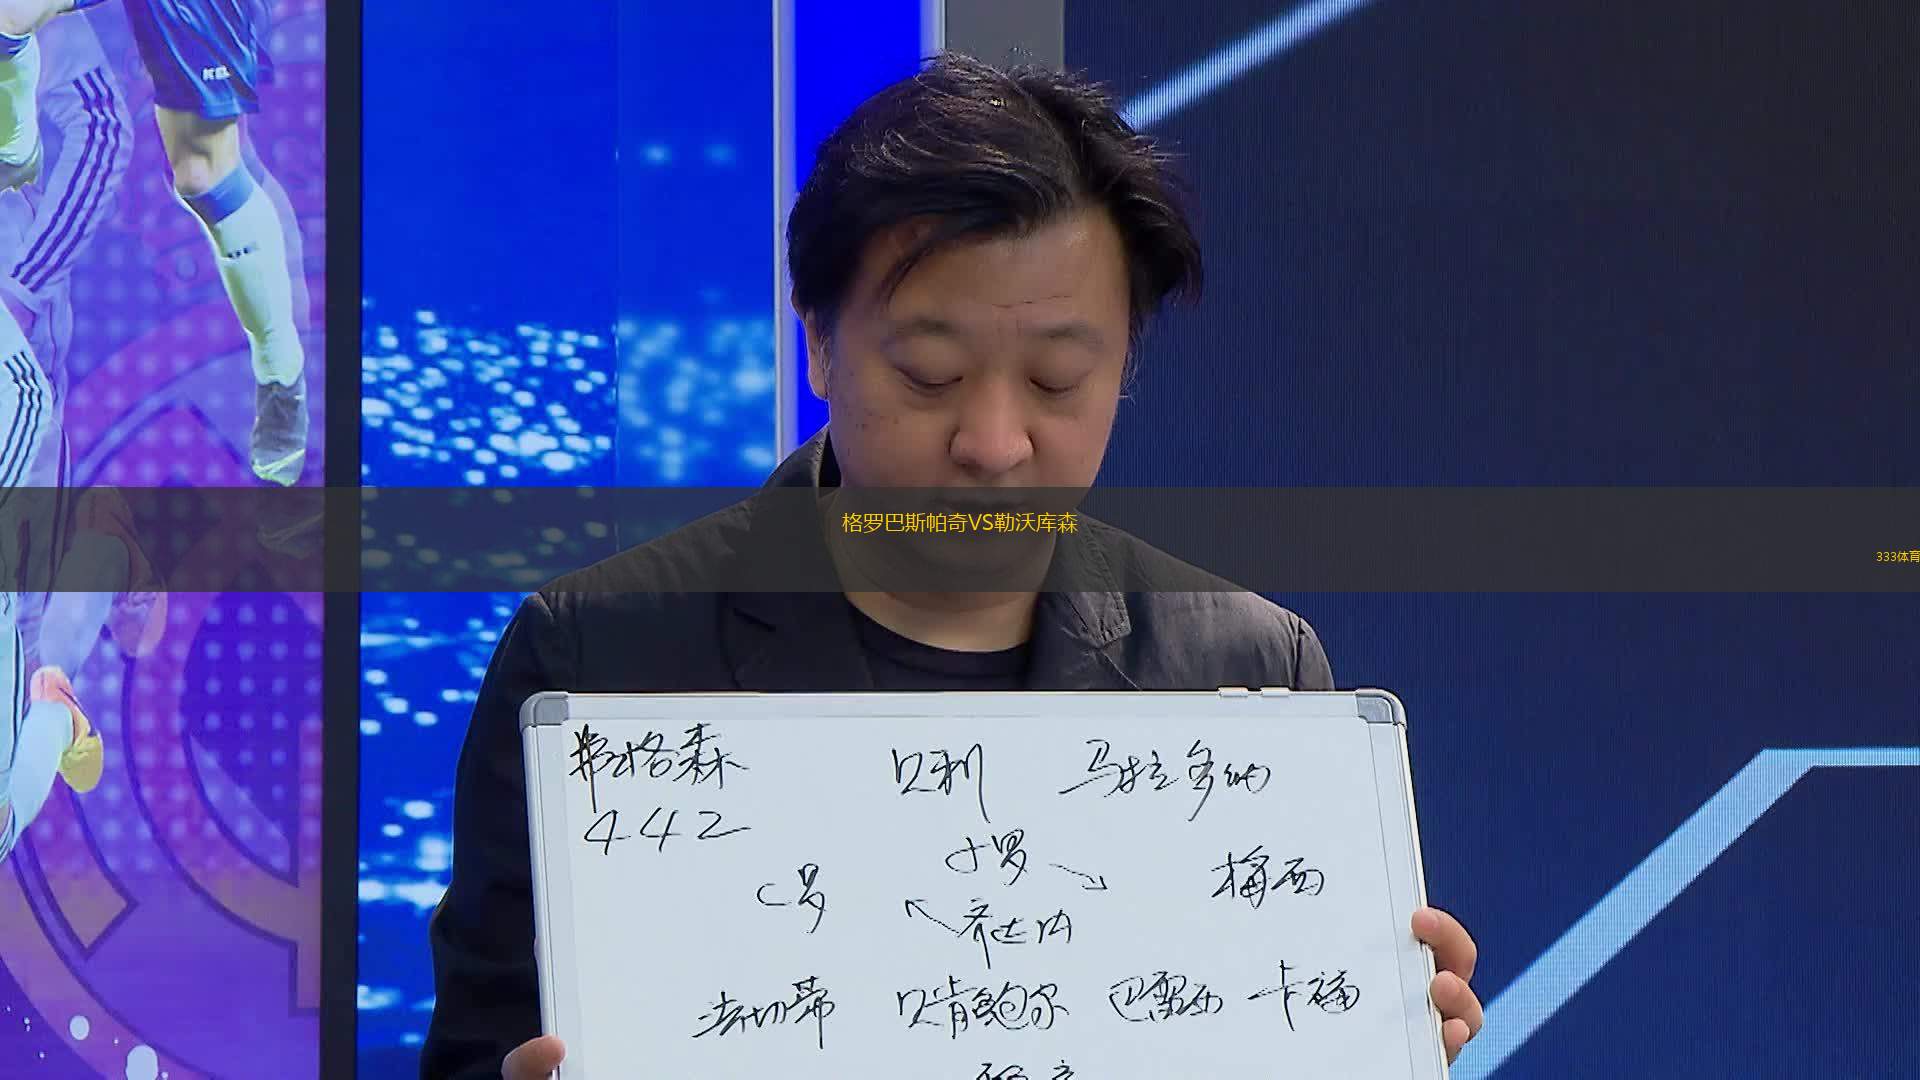 格罗巴斯帕奇VS勒沃库森
333体育
弗格森 贝利 马拉多纳
442
小罗
C罗 梅西
齐达内
法切蒂 贝肯鲍尔 巴雷西 卡福